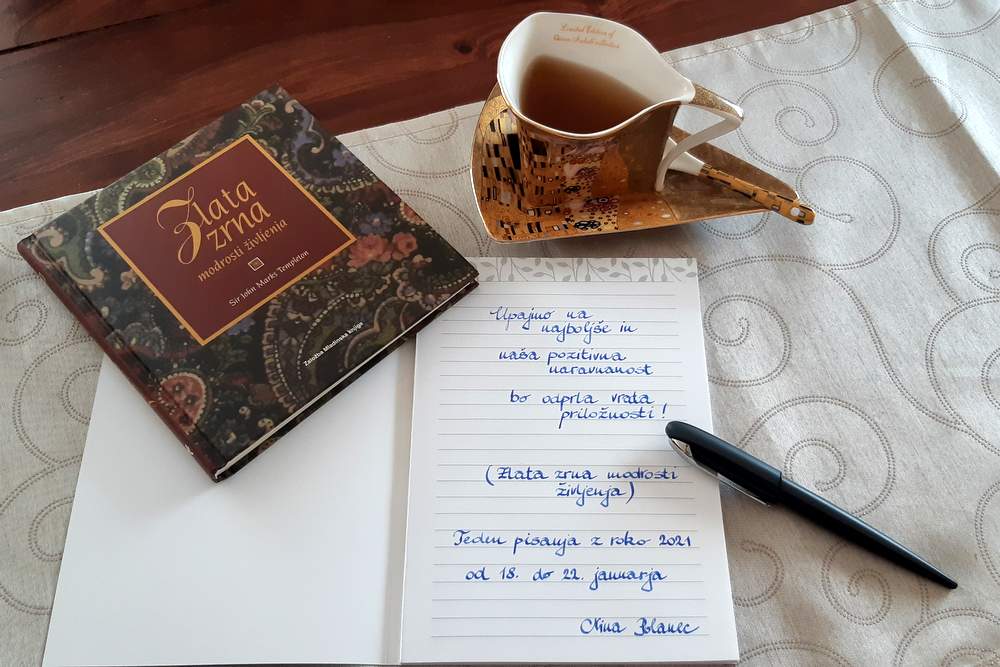 Zlata
zrna
modrosti življenja
Sir John Marks Templeton
Založba Mladinska knjiga
Limited Edition of
Upajmo na
najboljše in
naša pozitivna
naravnanost
bo odprla vrata
priložnosti!
(Zlata zrna modrosti
življenja)
Teden pisanja z roko 2021
od 18. do 22. januarja
Nina Polanec